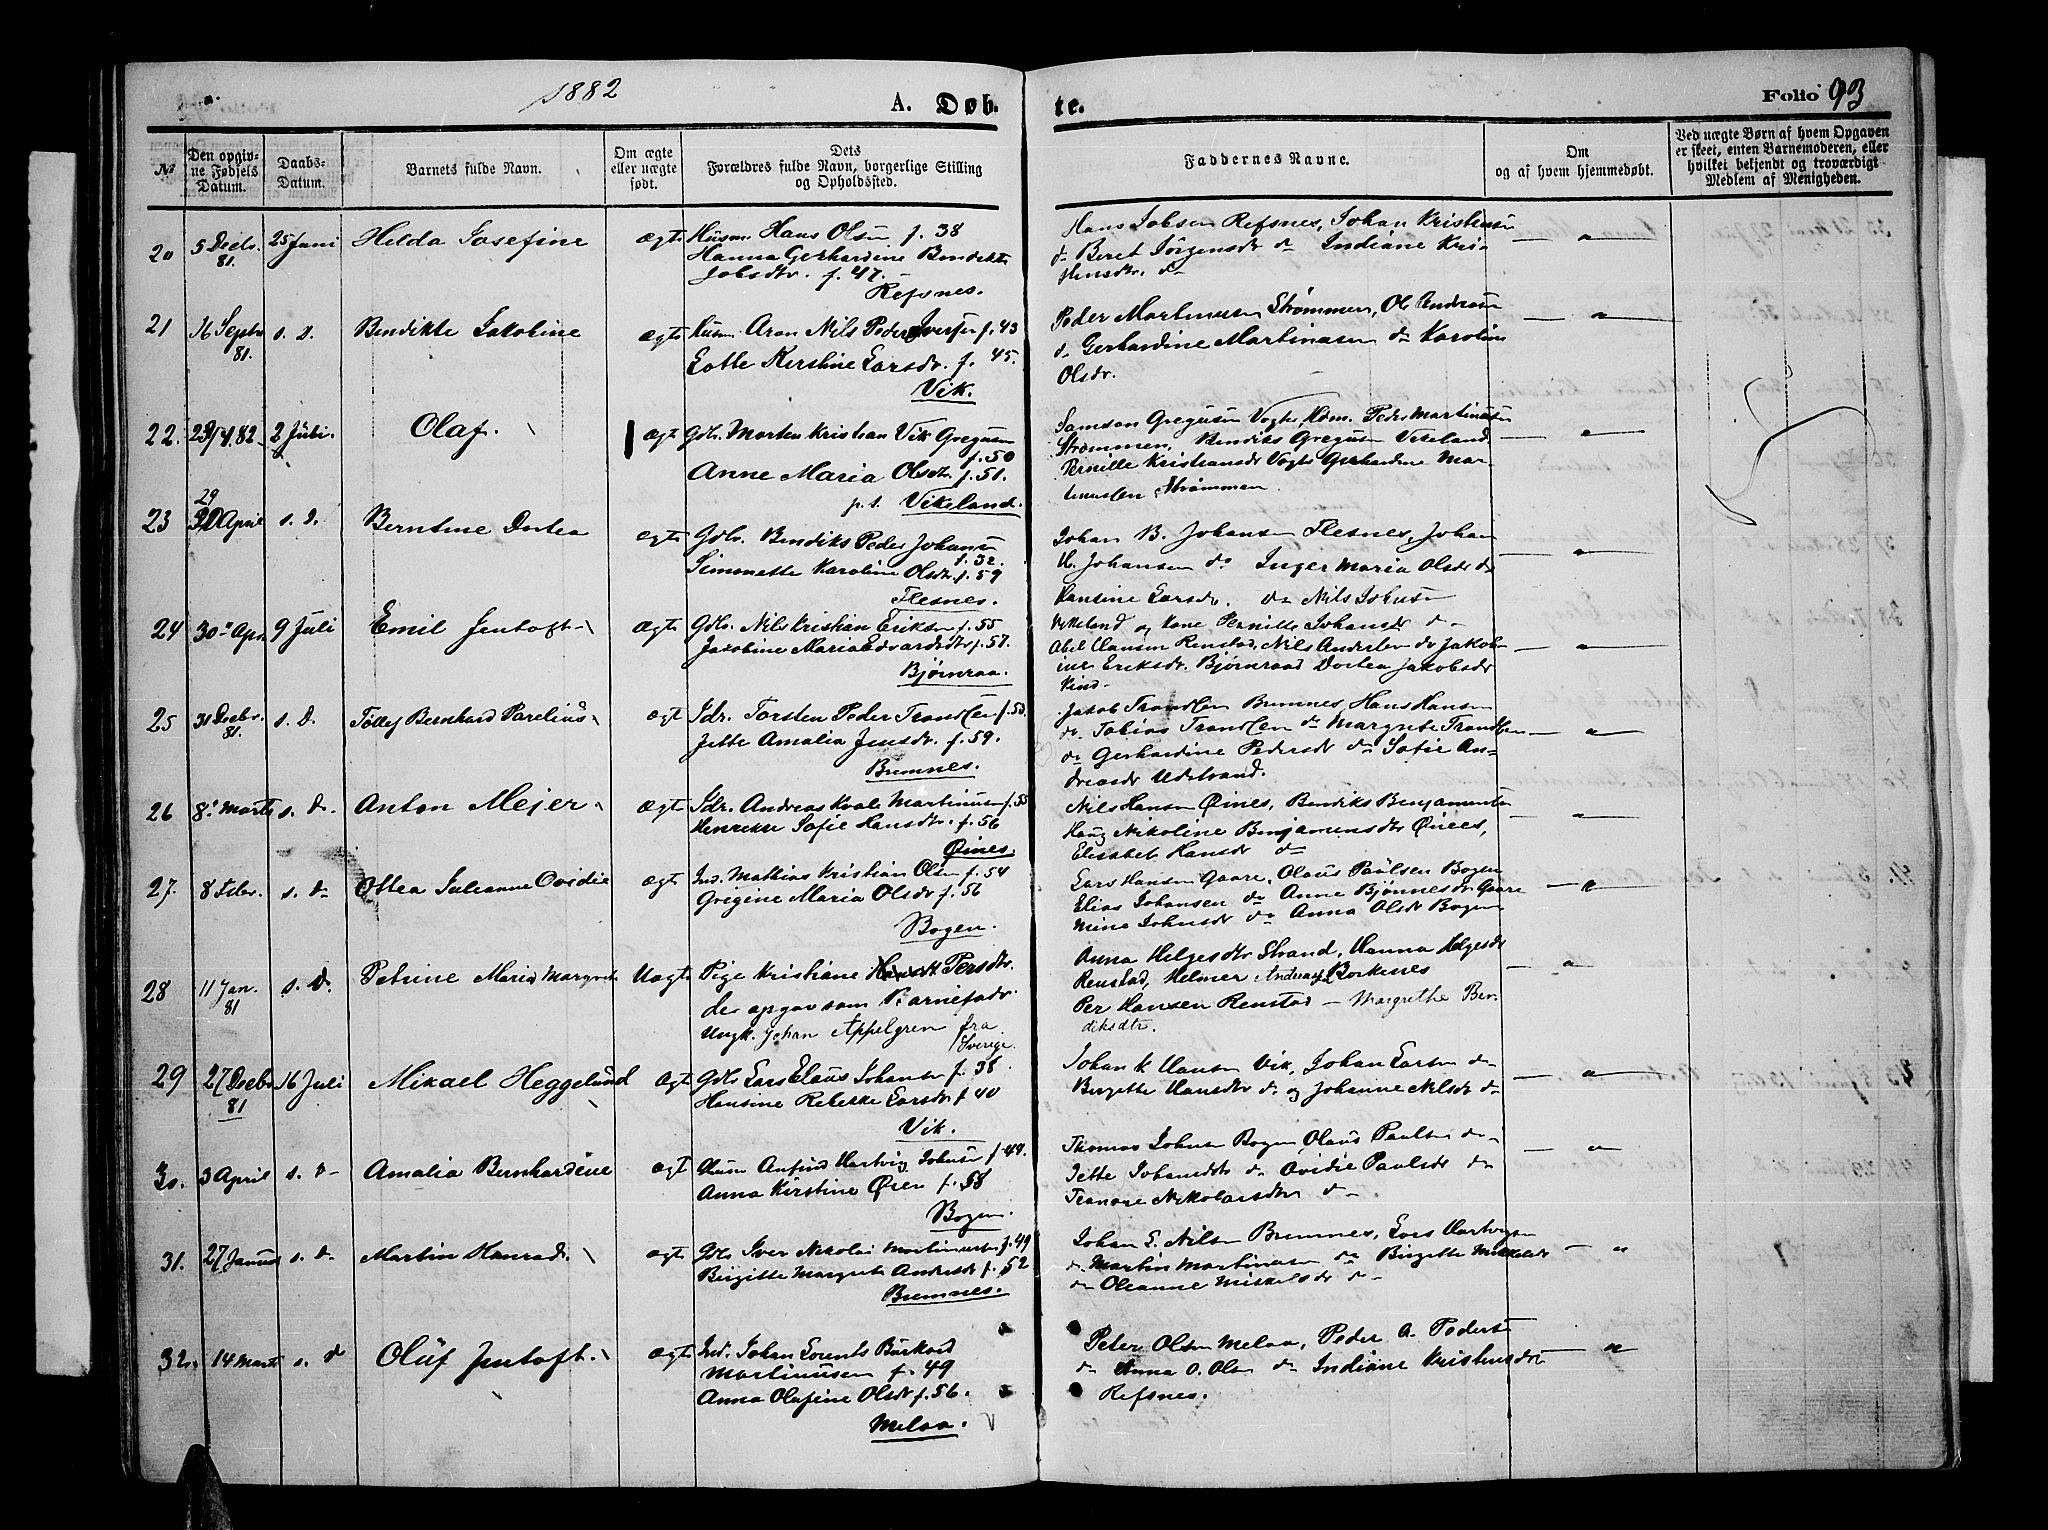 1882
A. Døb-
te.
Folio 93
No
Den opgiv-
ne Fødsels
Datum.
Daabs-
Datum.
Barnets fulde Navn.
Om ægte
eller uægte
født.
Dets
Forældres fulde Navn, borgerlige Stilling
og Opholdssted.
Faddernes Navne.
Om
og af hvem hjemmedøbt.
Ved uægte Børn af hvem Opgaven
er skeet, enten Barnemoderen, eller
hvilket bekjendt og troværdigt
Medlem af Menigheden.
20 5 Decbr. 81. 25 Juni Helda Josefine ægte
Husm. Hans Olsen f. 38
Hanna Gerhardine Bendikte
Jobsdtr. f. 47.
Refsnes.
Hans Jobsen Refsnes, Johan Kristensen
do Beret Jørgensdr do Indiane Kris-
tensdtr. do
21 16 Septbr 81. s. D. Bendikte Jakobine ægte
Husm. Aron Nils Peder Iversen f. 43
Lotte Kirstine Larsdr. f. 45.
Vik.
Peder Martinusen Strømmen, Ol Andreasen
do Gerhardine Martinusen do Karoline
Olsdr.
22. 82. 2 Juli. Olaf. ægte
Gdbr. Morten Kristian Vik Gregusen
f. 50
Anne Maria Olsdtr. f. 51.
p. t. Vikeland.
Samson Gregusen Vogts, Peder Martinusen
Strømmen, Bendiks Gregusen Vikeland
Pernille Kristiansdr Vogts Gerhardine Mar-
tinussen Strømmen.
23 29 April s. D. Berntine Dortea ægte
Gdbr. Bendiks Peder Johansen
f. 32.
Simonette Karoline Olsdtr. f. 59
Flesnes.
Johan B. Johansen Flesnes, Johan
H. Johansen do Inger Maria Olsdr do
Hansine Larsdr. do Nils Johnsen
Vikeland og Kone Pernille Johansdr do
24 30te Apr. 9 Juli Emil Jentoft ægte
Gdbr. Nils Kristian Eriksen f. 55
Jakobine Maria Edvardsdtr f. 57.
Bjørnraa.
Abel Hansen Renstad, Nils Andersen do Jakob-
ine Eriksdr. Bjørnraa Dortea Jakobsdr
25 31 Decbr. 81. s. D. Tolley Bernhard Parelius ægte
Idr. Torsten Peder Trondsen f. 53
Jette Amalia Jensdr. f. 59.
Bremnes.
Jakob Trondsen Bremnes, Hans Hansen
do. Tobias Trondsen do Margrete Trondsen
do Gerhardine Pedersdr do Sofie An-
dreasdr Udstrand.
26 8de Marts s. D. Anton Mejer ægte
Idr. Andreas Kvale Martinusen f. 55
Henrikke Sofie Hansdtr. f. 56
Øines.
Nils Hansen Øines, Bendiks Benjaminsen
Haug Nikoline Benjaminsdtr Øines,
Elisabet Hansdr do
27. 8 Febr. s. D. Ottea Julianne Ovidie ægte
Ind. Mathias Kristian Olsen f. 54
Grigine Maria Olsdr f. 56
Bogen.
Lars Hansen Gaare, Olaus Paulsen Bogen
Elias Johansen do Anne Bjønnesdr Gaare
Mina Johnsdr do Anna Olsdr Bogen
28 11 Jan. 81 s. D. Petrine Maria Margrete Uægte
Pige Kristiane Persdtr.
der opgav som Barnefadr.
Ungk. Johan Appelgren fra
Sverige.
Anna Helgesdtr Strand, Hanna Helgesdr
Renstad, Helmer Andreas Borkenes
Per Hansen Renstad – Margrethe Ben-
diksdtr.
29 27 Decbr 81 16 Juli Mikael Heggelund ægte
Gdbr Lars Elaus Johansen f. 38
Hansine Rebekke Larsdr f. 40
Vik.
Johan K Hansen Vik, Johan Larsen do
Bergitte Hansdtr do og Johanne Nilsdr do
30. 3 April s. D. Amalia Bernhardine ægte
Husm Anfind Hartvig Johnsen f. 49.
Anna Kirstine Øien f. 58
Bogen.
Thomas Johnsen Bogen Olaus Paulsen do
Jette Johansdtr do Ovidie Paulsdr do
Nikolaisdtr do
31. 27 Januar s. D. Martin Konrad ægte
Gdbr Iver Nikolai Martinusen f. 49
Birgitte Margrete Andersdr f. 52
Bremnes.
Johan E. Nilsen Bremnes, Lars Hartvigsen
do Martin Martinusen do Birgitte Mikkelsdr
do Oleanne Mikkelsdr do
32. 14 Marts s. D Oluf Jentoft. ægte
Ind. Johan Lorents Burkard
Martinusen f. 49
Anna Olafine Olsdr f. 56.
Melaa.
Peter Olsen Melaa, Peder A. Pedersen
do Anna O. Olsen do Indiane Kristensdr
Refsnes.